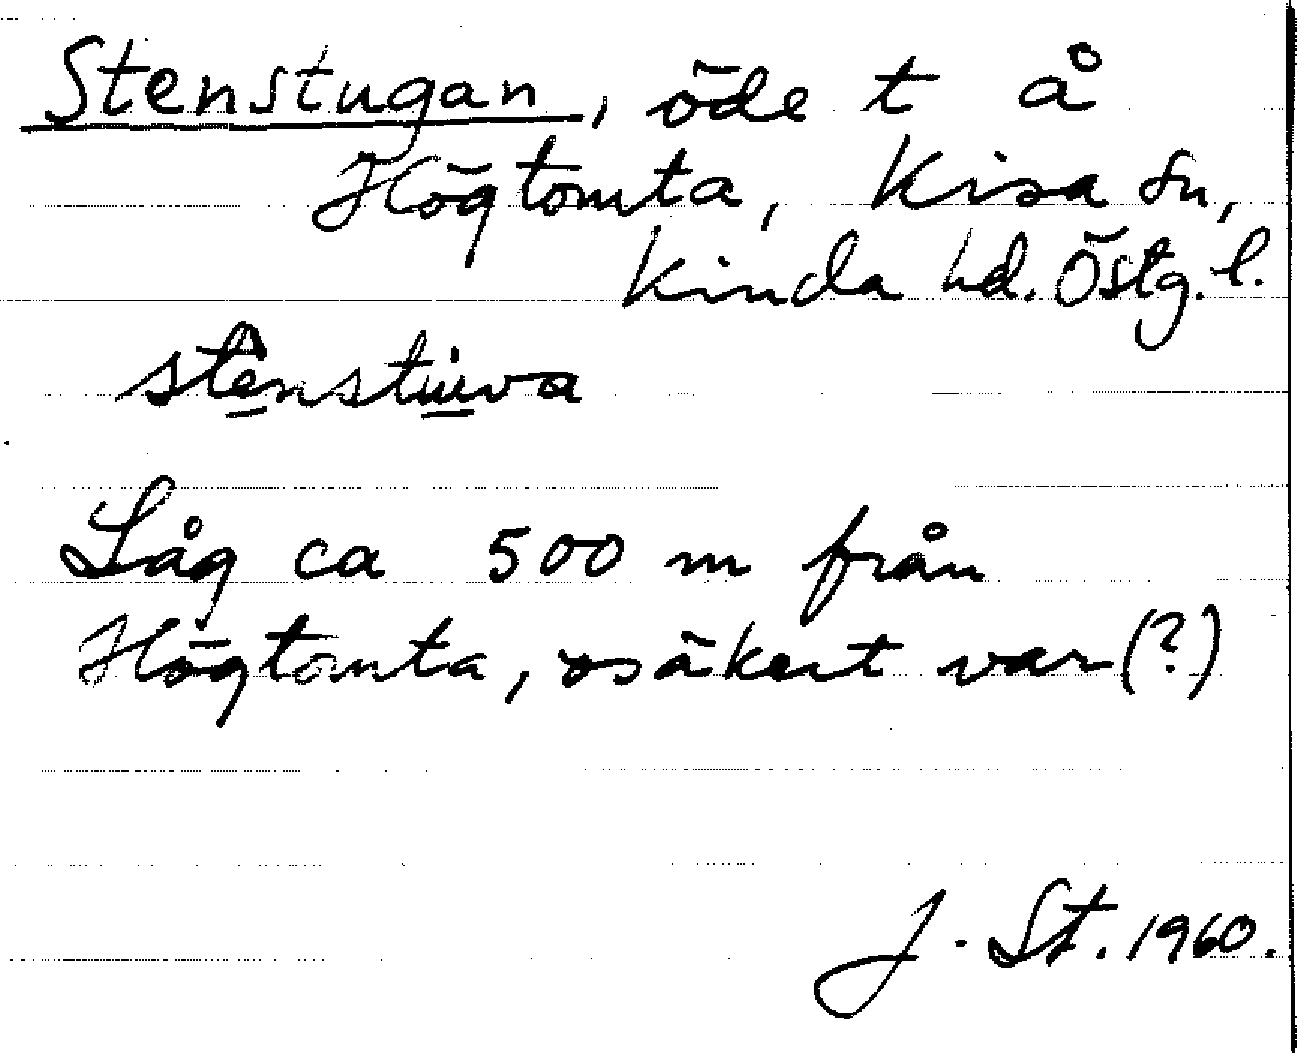 Stenstugan, öde t å
Högtomta, Kisa sn,
Kinda hd. Östg. l.
Låg ca 500 m från
Högtomta, osäkert var (?)
J. St. 1960.